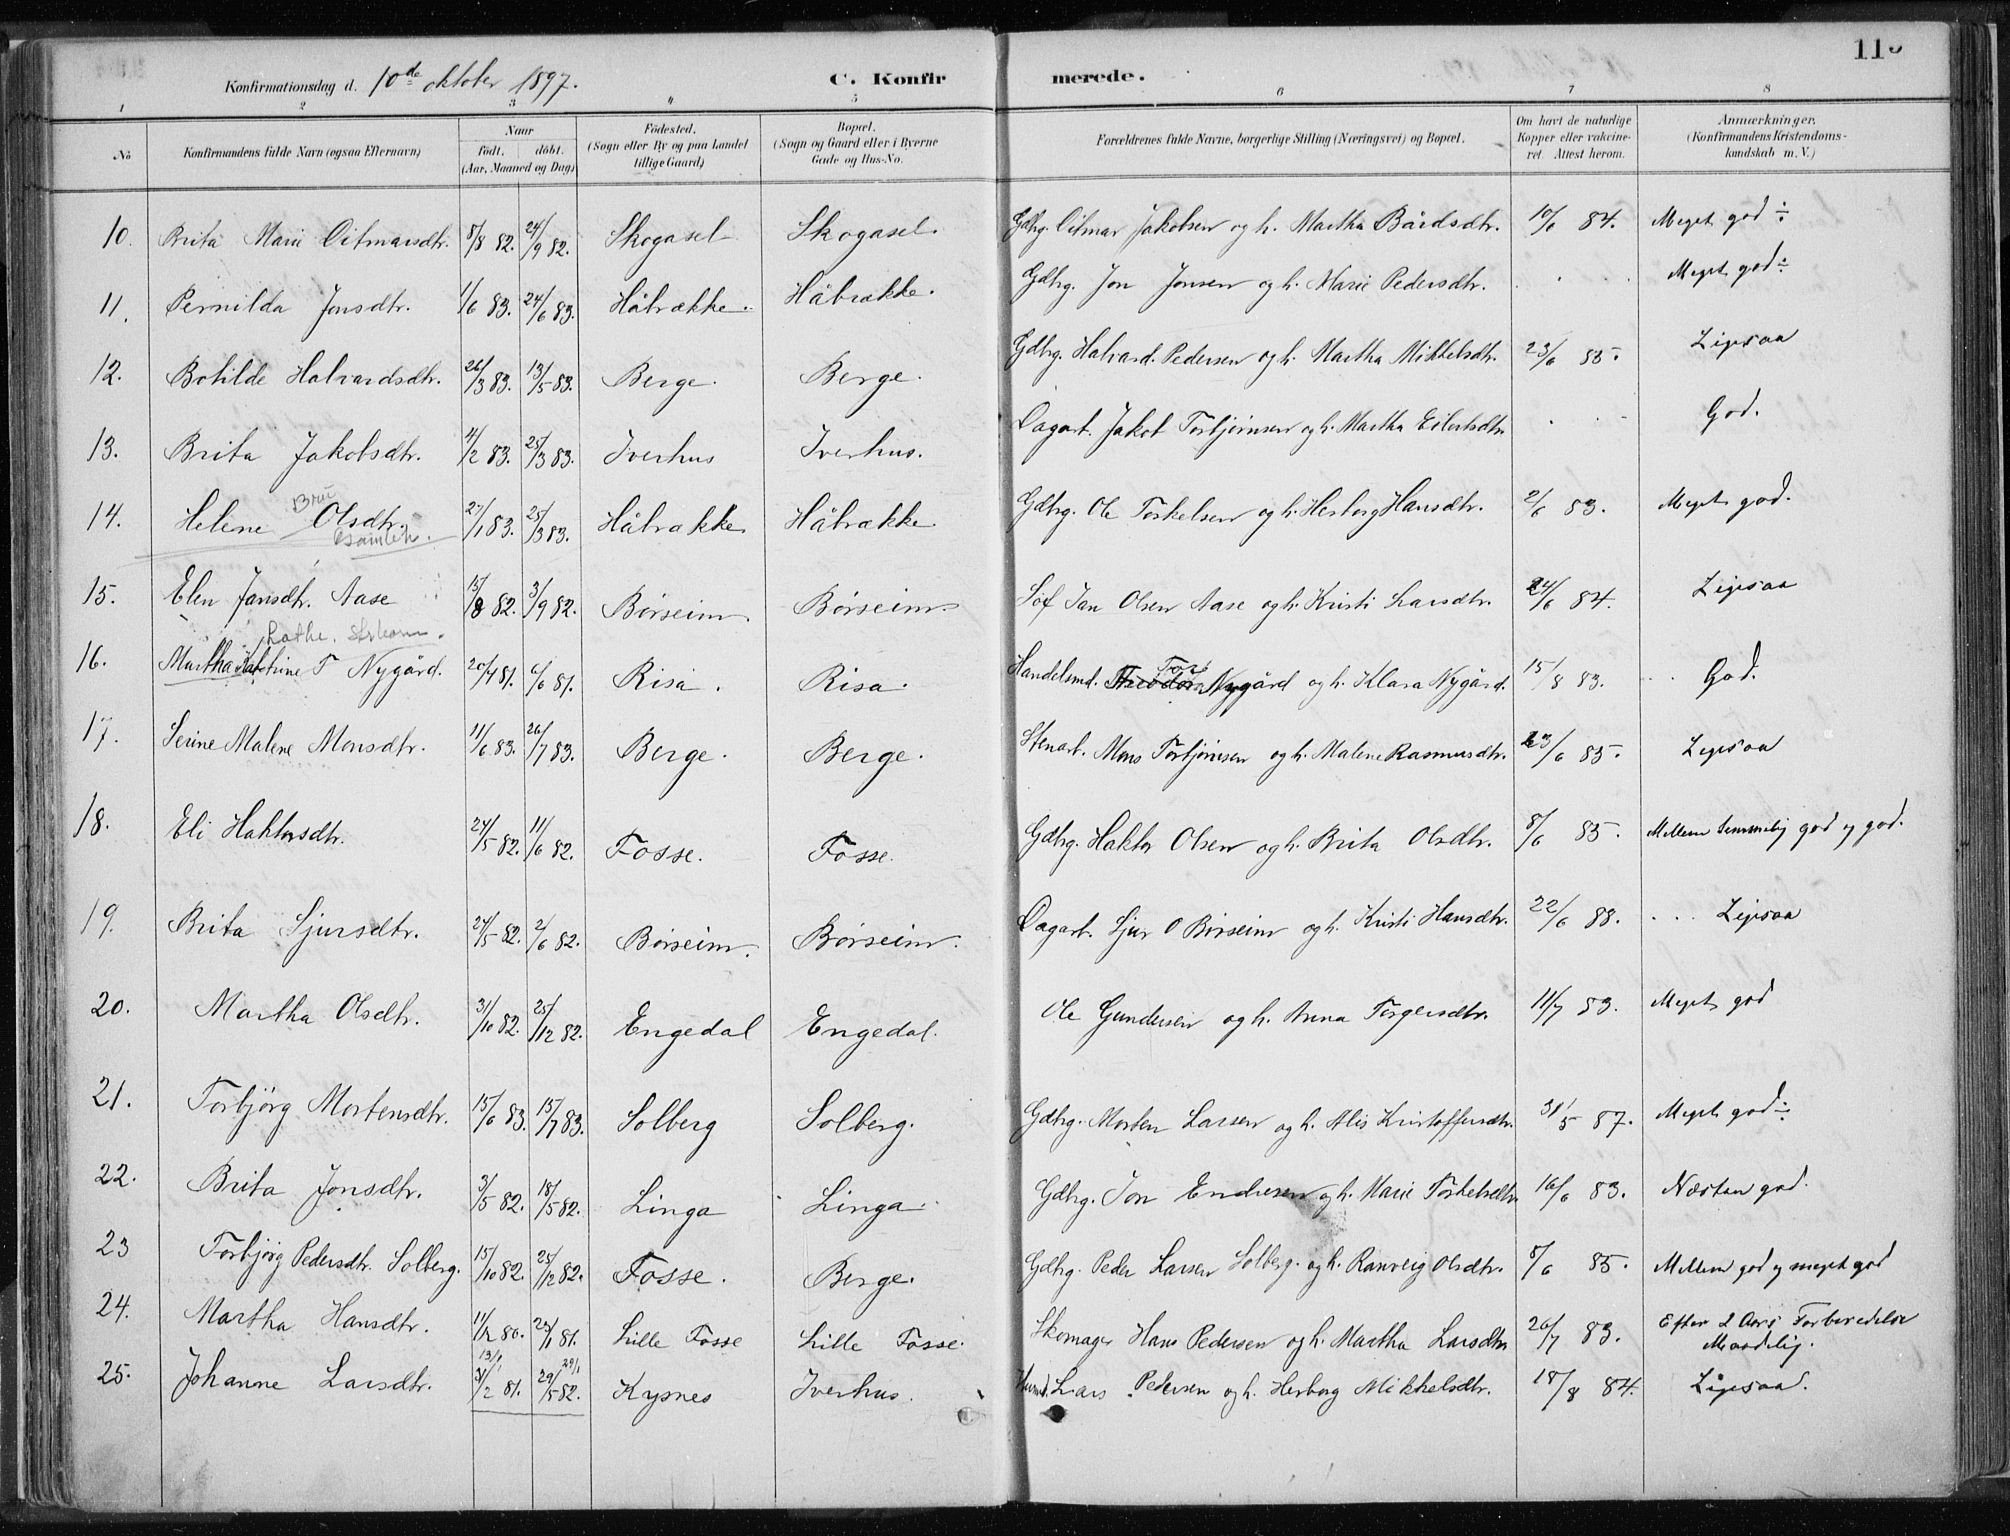 115
Konfirmationsdag d. 10de oktober 1897. C. Konfirmerede.
1 2 3 4 5 6 7 8
No Konfirmandens fulde Navn (ogsaa Efternavn) Naar født. døbt. (Aar, Maaned og Dag) Fødested. (Sogn eller By og paa Landet tillige Gaard) Bopæl. (Sogn og Gaard eller i Byerne Gade og Hus-No. Forældrenes fulde Navne, borgerlige Stilling (Næringsvei) og Bopæl. Om havt de naturlige Kopper eller vakcineret. Attest herom. Anmærkninger. (Konfirmandens Kristendomskundskab m. V.)
10. Brita Marie Ditmarsdtr. 8/8 82. 24/9 82. Skogasel Skogasel. Gdbrg. Ditmar Jakobsen og h. Martha Bårdsdtr. 10/6 84. Meget god ÷
11. Pernilda Jonsdtr. 1/6 83. 24/6 83. Håbrække. Håbrække. Gdbrg. Jon Jonsen og h. Marie Pedersdtr. . . . Meget god ÷
12. Botilde Halvardsdtr. 26/3 83. 13/5 83. Berge. Berge. Gdbrg. Halvard Pedersen og h. Martha Mikkelsdtr. 23/6 85. Ligesaa
13. Brita Jakobsdtr. 4/2 83. 25/3 83. Iverhus Iverhus. Dagarb. Jakob Torbjørnsen og h. Martha Eilertsdtr . . . God.
14. Helene Olsdtr. 27/1 83. 25/3 83. Håbrække Håbrække Gdbrg. Ole Torkelsen og h. Herborg Hansdtr. 2/6 83. Meget god.
15. Elen Jansdtr. Aase 15/8 82. 3/9 82. Børseim Børseim Jan Olsen Aase og h. Kristi Larsdtr. 24/6 84. Ligesaa
16. Martha Katrine T Nygård. 20/4 81. 6/6 81. Risa. Risa. Handelsmd. Tor Nygård og h. Klara Nygård. 15/8 83. God.
17. Serine Malene Monsdtr. 11/6 83. 26/7 83. Berge. Berge. Stenarb. Mons Torbjørnsen og h. Malene Rasmusdtr. 23/6 85. Ligesaa
18. Eli Haktorsdtr. 24/5 82. 11/6 82. Fosse. Fosse. Gdbrg. Haktor Olsen og h. Brita Olsdtr. 8/6 85. Mellem temmelig god og god.
19. Brita Sjursdtr. 24/5 82. 2/6 82. Børseim. Børseim. Dagarb. Sjur O Børseim og h. Kristi Hansdtr. 22/6 88. . . . Ligesaa
20. Martha Olsdtr. 31/10 82. 25/12 82. Engedal Engedal. Ole Gundersen og h. Anna Torgersdtr. 11/7 83. Meget god
21. Torbjørg Mortensdtr. 15/6 83. 15/7 83. Solberg Solberg. Gdbrg. Morten Larsen og h. Alis Kristoffersdtr. 31/5 87. Meget god ÷
22. Brita Jonsdtr. 3/5 82. 18/5 82. Linga Linga Gdbrg. Jon Endresen og h. Marie Torkelsdtr 16/6 83. Næsten god.
23 Torbjørg Pedersdtr. Solberg. 15/10 82. 25/12 82. Fosse. Berge. Gdbrg. Peder Larsen Solberg. og h. Ranveig Olsdtr. 8/6 85. Mellem god og meget god
24. Martha Hansdtr. 11/12 80. 23/1 81. Lille Fosse Lille Fosse. Skomager Hans Pedersen og h. Martha Larsdtr 26/7 83. Efter 2 Aars Forberedelse Maadelig.
25. Johanne Larsdtr. 31/2 81. 29/5 82. Kysnes Iverhus. Lars Pedersen og h. Herborg Mikkelsdtr. 18/8 84. Ligesaa.